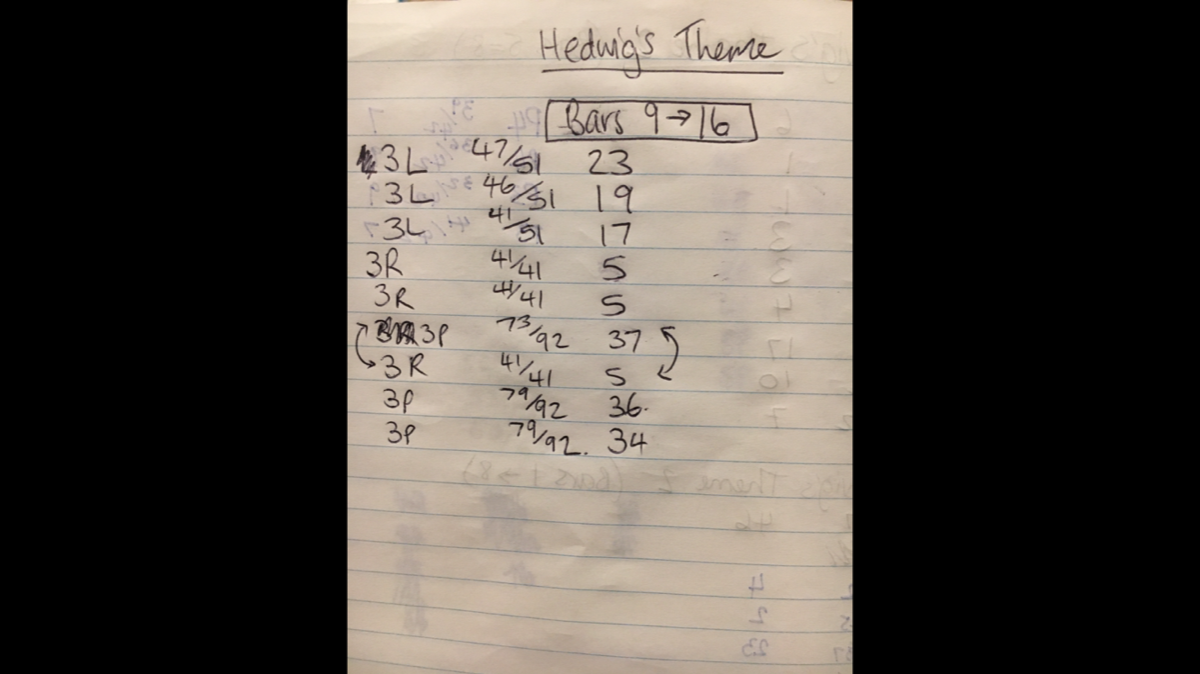 Hedwig's Theme
Bars 9→16
3L 47/51 23
3L 46/51 19
3L 41/51 17
3R 41/41 5
3R 41/41 5
3P 73/92 37
3R 41/41 5
3P 79/92 36.
3P 79/92. 34